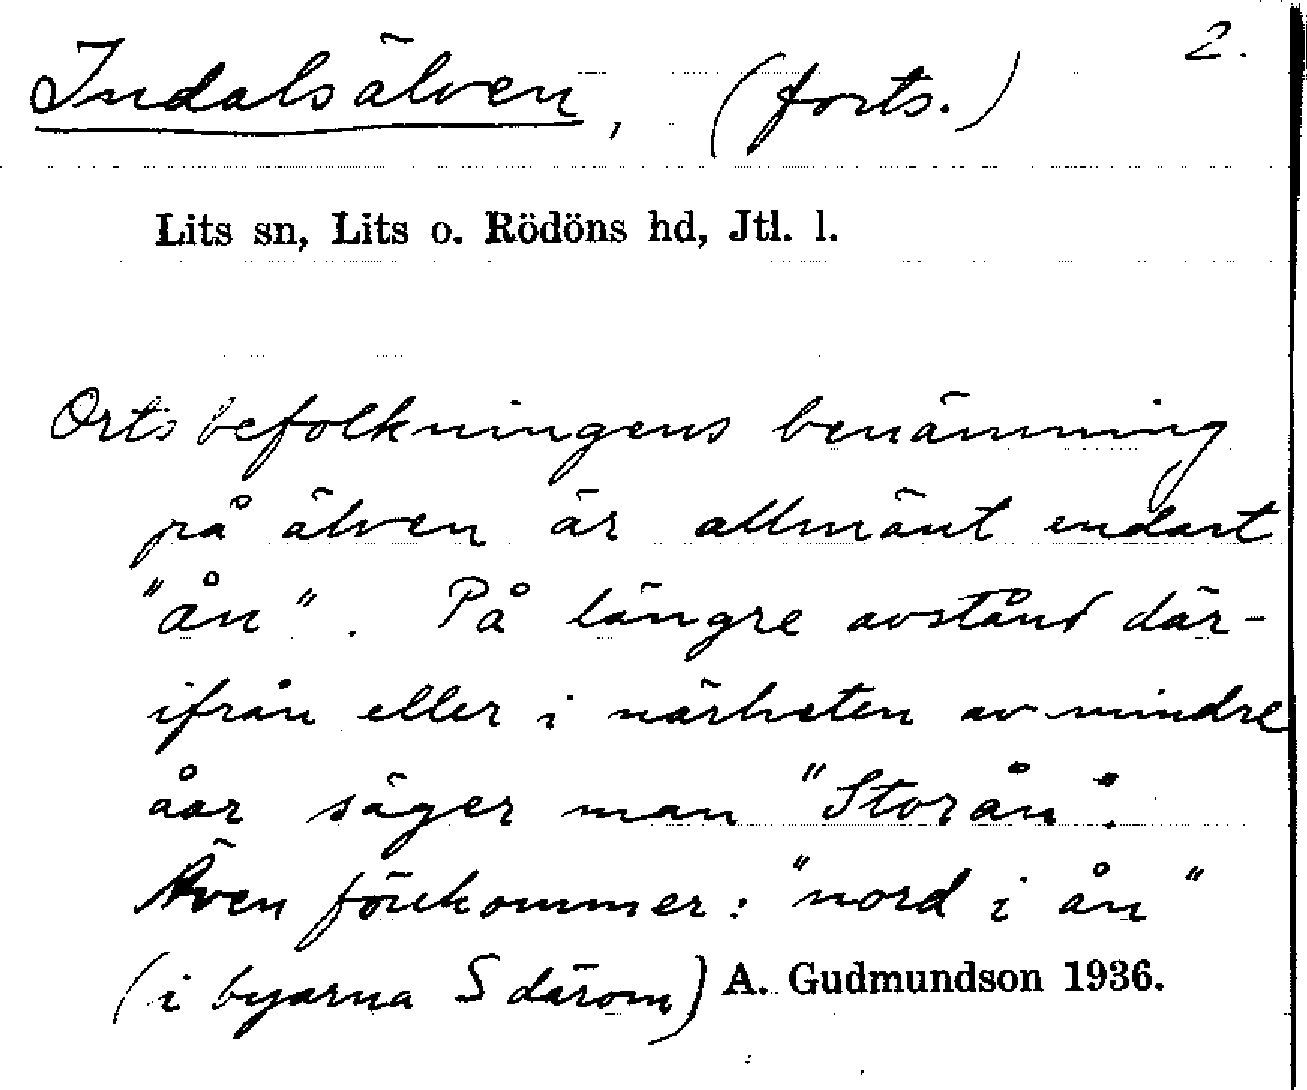 2.
Indalsälven, (forts.)
Lits sn, Lits o. Rödöns hd, Jtl. l.
Ortsbefolkningens benämning
på älven är allmänt endast
"ån". På längre avstånd där-
ifrån eller i närheten av mindre
åar säger man "Storån".
Även förekommer: "nord i ån"
(i byarna S därom) A. Gudmundson 1936.